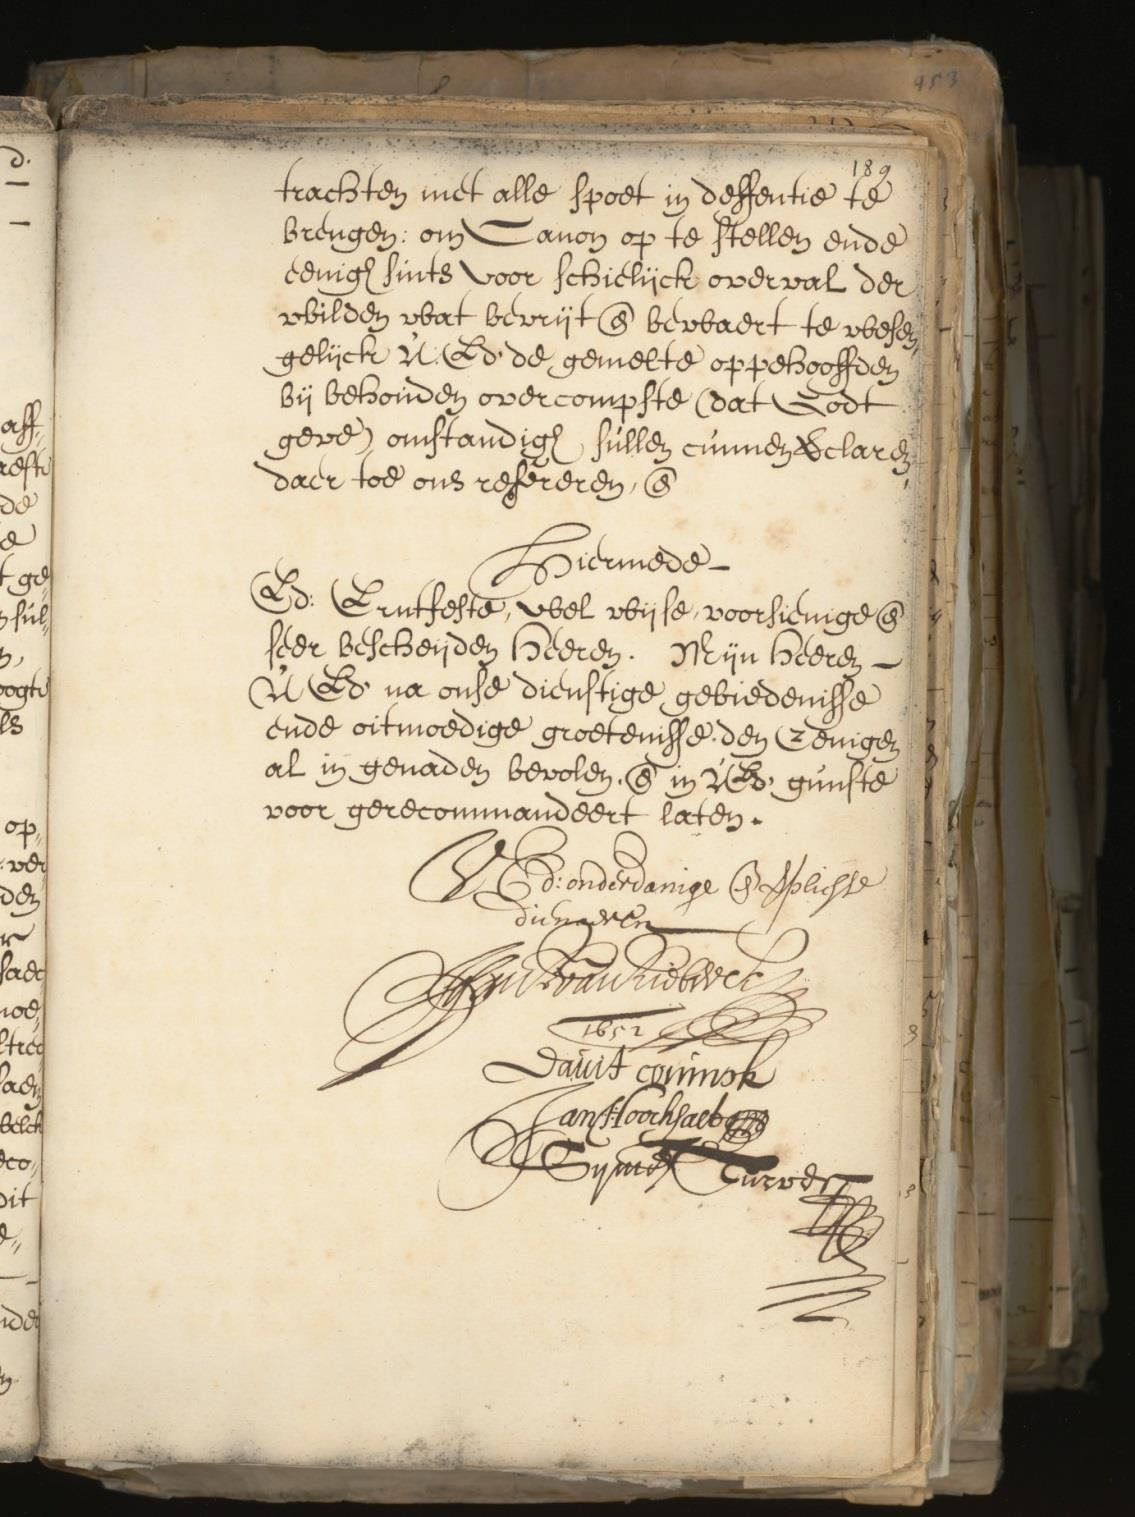 953
189
trachten met alle spoet in deffentie te
brengen: om Canon op te stellen ende
eenigs sints voor schielijck overval der
wilden wat bevrijt & bewaert te wesen,
gelijck U: Ed: de gemelte oppehooffden
bij behouden overcompste (dat Godt
geve) omstandigh sullen cunnen declaren
daer toe ons refereren, &
Hiermede
Ed: Erntfeste, wel wijse, voorsienige &
seer bescheijden Heeren. Mijn heeren
U Ed: na onse dienstige gebiedenisse
ende oitmoedige groetenisse. den Eenigen
al in genaden bevolen. & in U Ed: gunste
voor gerecommandeert laten.
U Ed: onderdanige & plichtse
dienaeren
Johan van Riebeeck
1652
Davit coninck
Jan Hoochsaet
Symon Turver